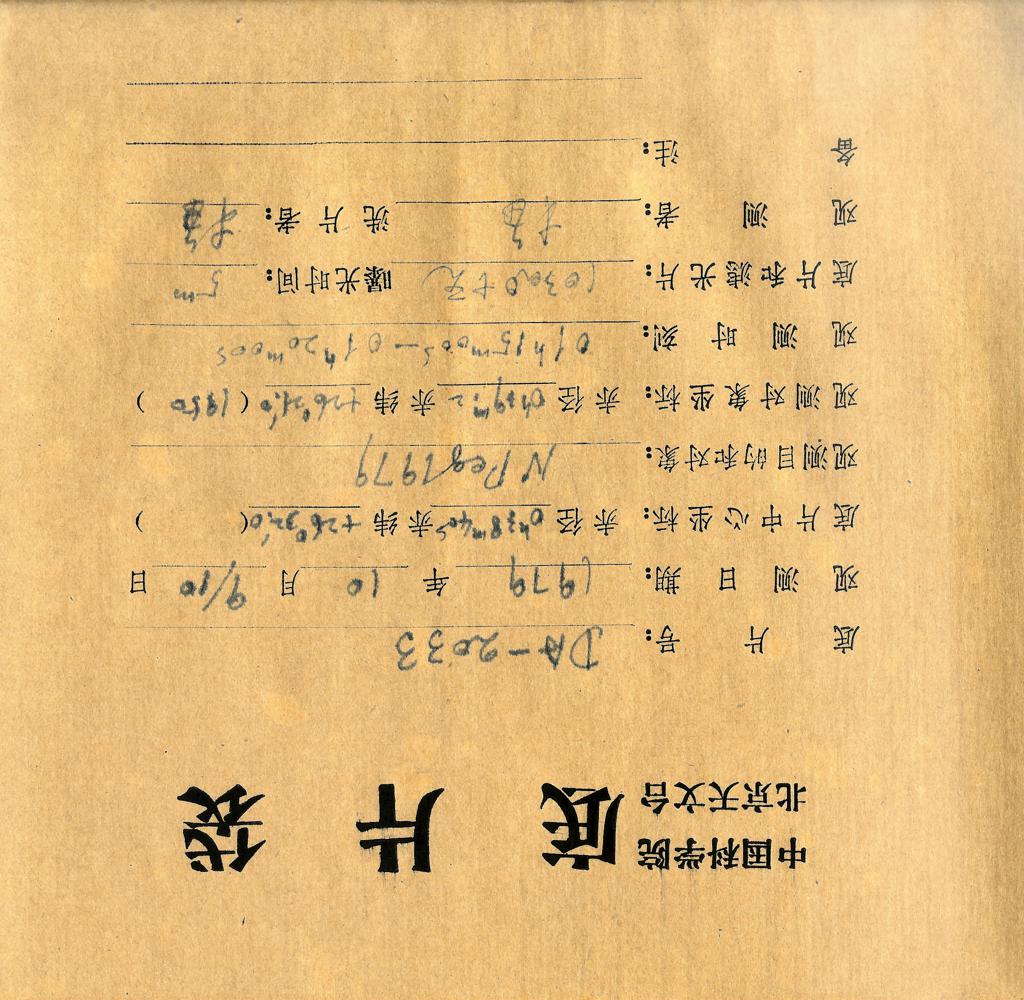 中国科学院
北京天文台 底片袋
底片号: DA-2033
观测日期: 1979 年 10 月 9/10 日
底片中心坐标: 赤径 0h38m40s 赤纬 +26°32′.0 ( )
观测目的和对象: N Peg 1979
观测对象坐标: 赤径 赤纬 ( 1950 )
观测时刻: 01h15m00s—01h20m00s
底片和滤光片: 103aO+无 曝光时间: 5m
观测者: 洗片者:
备注: